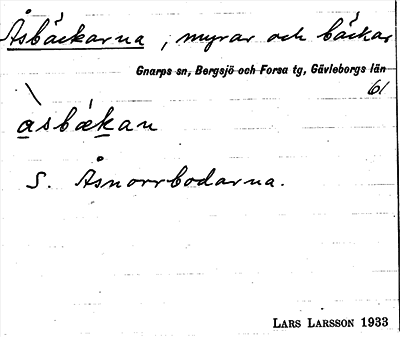 Åsbäckarna, myrar och bäckar
Gnarps sn, Bergsjö och Forsa tg, Gävleborgs län
61
àsbækan
S. Åsnorrbodarna.
LARS LARSSON 1933